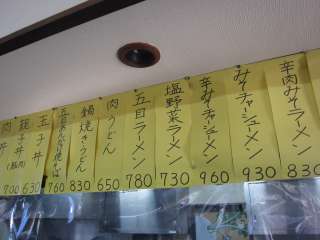 辛肉みそラーメン
830
みそチャーシューメン
930
辛みそチャーシューメン
960
塩野菜ラーメン
730
五目ラーメン
780
肉うどん
650
鍋焼きうどん
830
五目あんかけ焼そば
760
玉子丼
630
親子丼
(豚肉)
700
肉丼